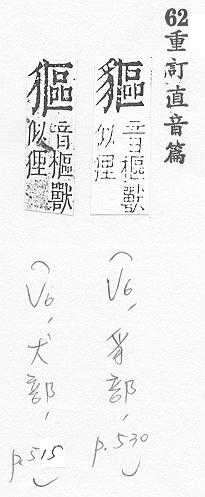 62 重訂直音篇
貙
音樞獸
似俚
(V6, 豸部, p.530)
音樞獸
似俚
(V6, 犬部, p.515)